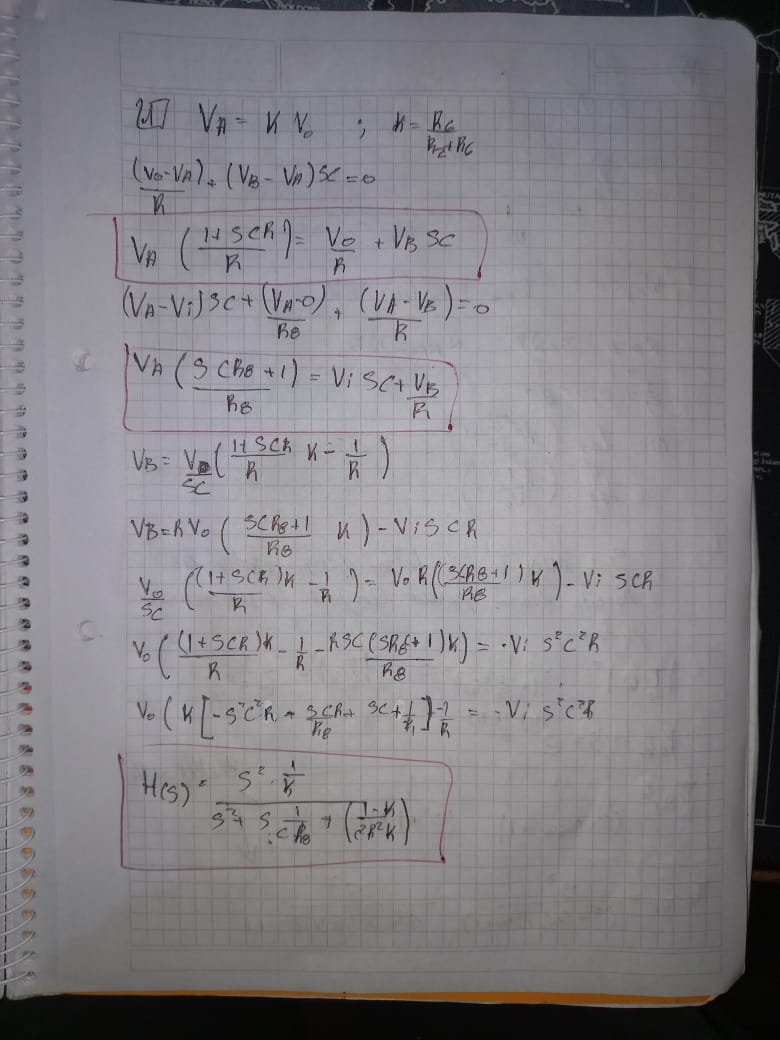 V_A = K V_o ; K = R6/(R2+R6)
(V_o - V_A)/R + (V_B - V_A) SC = 0
V_A ((1 + SCR)/R) = V_o/R + V_B SC
(V_A - V_i) SC + (V_A - 0)/R8 + (V_A - V_B)/R = 0
V_A ((SCR8 + 1)/R8) = V_i SC + V_B/R
V_B = V_o/SC ((1 + SCR)/R K - 1/R)
V_B = R V_o ((SCR8 + 1)/R8 K) - V_i SCR
V_o/SC ((1 + SCR)K/R - 1/R) = V_o R (((SCR8 + 1)/R8) K) - V_i SCR
V_o ((1 + SCR)K/R - 1/R - RSC (SR8 + 1)K/R8) = -V_i S²C²R
V_o (K [-S²C²R - SCR/R8 + SC + 1/R] - 1/R = -V_i S²C²R
H(S) = (S² · 1/K)/(S² + S 1/(CR8) + ((1 - K)/(²R²K)))